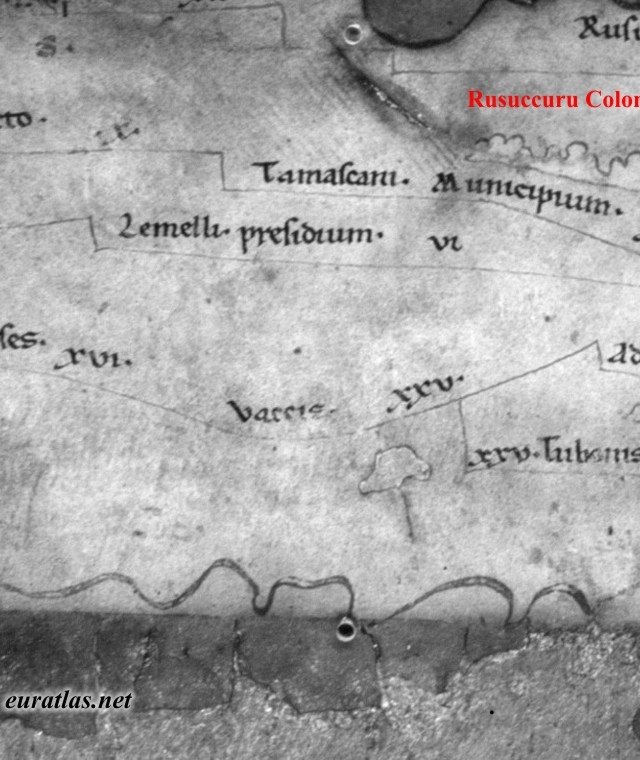 Rusu
Rusuccuru Colon
cto.
Tamascani. Municipium.
Lemelli. presidium. vi
ses. xvi.
Ad
Vaccis. xxv.
xxv. Tubonis
euratlas.net